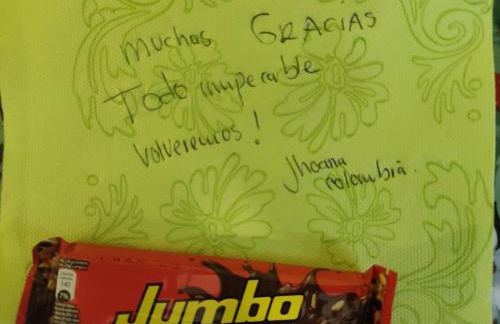 Muchas GRACIAS
Todo impecable
Volveremos!
Jhoana
colombia.
Jumbo